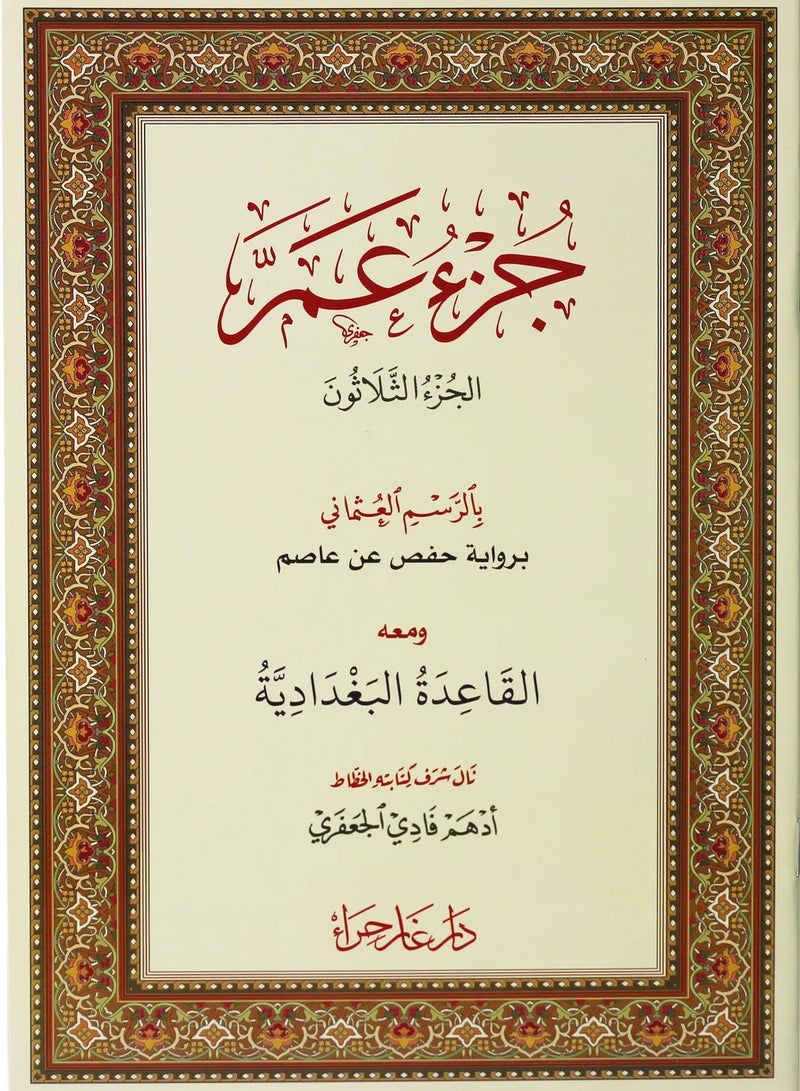 جُزْءُ عَمَّ
جعفري
الجُزْءُ الثَّلَاثُونَ
بِٱلرَّسْمِ ٱلعُثْمَانِي
برواية حفص عن عاصم
ومعه
القَاعِدَةُ البَغْدَادِيَّةُ
نَالَ شَرَفَ كِتَابَتِهِ الخَطَّاط
أَدْهَمْ فَادِيْ ٱلجَعْفَرِيْ
دَار غَار حِرَاء